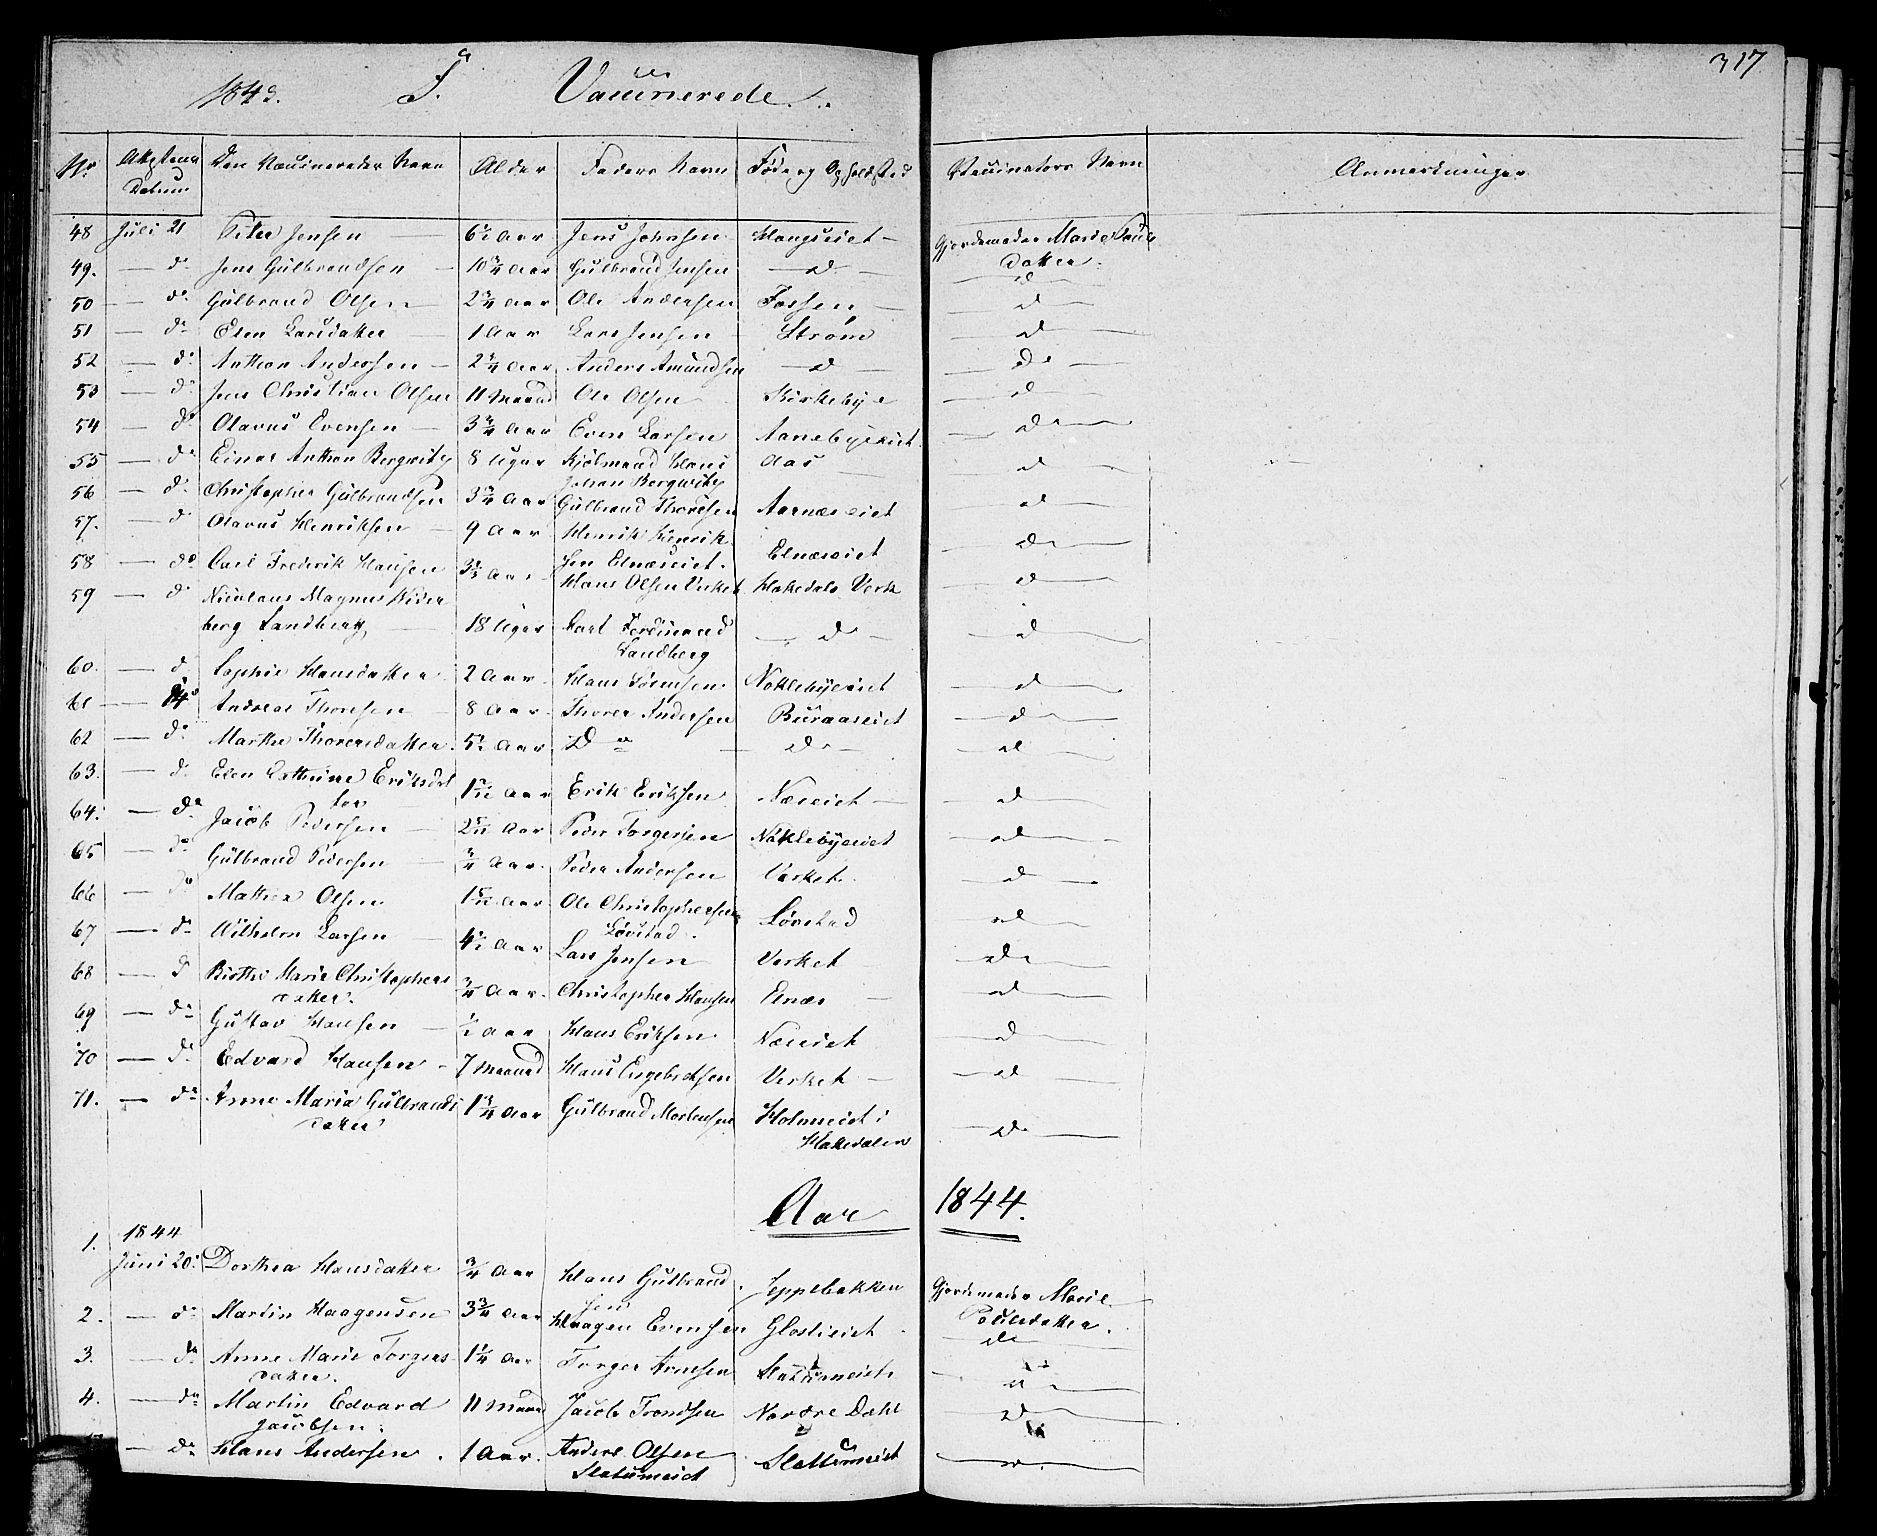 317
1843. F. Vaccinerede.
Nr. Attestens Datum Den Vaccineredes Navn Alder Faders Navn Føde og Opholdsted Vaccinators Navn Anmærkninger
48 Juli 21 Peter Jensen 6½ Aar Jens Johnsen Haugseiet Gjordemoder Marie Pouls
datter.
49. — do Jens Gulbrandsen 10¾ Aar Gulbrand Jensen — d — d
50 — do Gulbrand Olsen 2¾ Aar Ole Andersen Fossen d
51 — do Elen Larsdatter 1 Aar Lars Jensen Strøm d
52 — do Anthon Andersen 2¾ Aar Anders Amundsen — d — do
53 — do Jens Christian Olsen 11 Maand Ole Olsen Kirkeby d
54 — do Olavus Evensen 3¾ Aar Even Larsen Aanebyeiet do
55 — do Einar Anthon Bergwitz 8 Uger Kjøbmand Hans Aas d
Johan Bergwitz
56 — do Christopher Gulbrandsen 3¾ Aar Gulbrand Thoresen Aarnæseiet d
57. — d Olavus Henriksen 9 Aar Henrik Henrik Elnæseiet do
sen Elnæseiet.
58 — do Carl Frederik Hansen Aar Hans Olsen Verket Hakedals Verk d
59 — do Nicolaus Magnus Wider
berg Landberg 18 Uger Carl Ferdinand — d — d
Landberg
60. — d Sophie Hansdatter 2 Aar Hans Sørensen Nøklebyeiet d
61 — do Andreas Thoresen 8 Aar Thorer Andersen Buraaseiet d
62 — do Marthe Thorersdatter 5½ Aar do — do — d
63. — do Elen Cathrine Eriksdat
ter Aar Erik Eriksen Næseiet d
64. — do Jacob Pedersen Aar Peder Torgersen Nøklebyeiet d
65 — do Gulbrand Pedersen ¾ Aar Peder Andersen Verket d
66 — do Mathea Olsen Aar Ole Christophersen Løvstad d
Løvstad.
67 — do Wilhelm Larsen 4½ Aar Lars Jensen Verket do
68 — d Birthe Marie Christophers
datter. ¾ Aar Christopher Hansen Elnæs d
69 — do Gustav Hansen ½ Aar Hans Eriksen Næseiet d
70 — do Edvard Hansen 7 Maaned Hans Engebretsen Verket d
71. — do Anne Maria Gulbrands
datter 1¾ Aar Gulbrand Mortensen Holmeiet i
Hakedalen do
Aar 1844.
1. 1844
Juni 20. Dorthea Hansdatter ¾ Aar Hans Gulbrand Jeppebakken Gjordemoder Marie
sen Poulsdatter.
2. — do Martin Haagensen 3¾ Aar Haagen Evensen Glostieiet do
3. — do Anne Marie Torgers
datter. 1¼ Aar Torger Arnesen Slattumeiet d
4. — do Martin Edvard 11 Maand Jacob Trondsen Nordre Dahl d
Jacobsen.
— do Hans Andersen. 1 Aar. Anders Olsen Slattumeiet d.
Slatumeiet